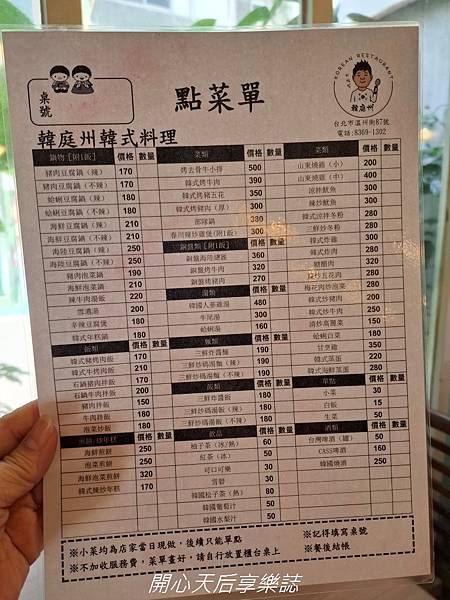 桌號
點菜單
KOREAN RESTAURANT
韓庭州
台北市溫州街87號
電話:8369-1302
韓庭州韓式料理
鍋物〔附1飯〕 價格 數量
豬肉豆腐鍋（辣） 170
豬肉豆腐鍋（不辣） 170
蛤蜊豆腐鍋（辣） 180
蛤蜊豆腐鍋（不辣） 180
海鮮豆腐鍋（辣） 210
海鮮豆腐鍋（不辣） 210
海陸豆腐鍋（辣） 250
海陸豆腐鍋（不辣） 250
豬肉泡菜鍋 190
海鮮泡菜鍋 210
辣牛肉湯飯 220
雪濃湯 200
辛辣豆腐煲 180
韓式年糕鍋 180
飯類 價格 數量
韓式豬烤肉飯 170
韓式牛烤肉飯 210
石鍋豬肉拌飯 170
石鍋牛肉拌飯 200
豬肉拌飯 150
牛肉拌飯 180
泡菜炒飯 180
煎餅/炒年糕 價格 數量
海鮮煎餅 250
泡菜煎餅 250
海鮮泡菜煎餅 320
韓式辣炒年糕 170
菜類 價格 數量
烤去骨牛小排 500
韓式烤牛肉 390
韓式烤豬五花 350
韓式烤豬肉（厚） 300
部隊鍋 380
春川辣炒雞煲(附1飯) 300
銅盤類〔附1飯〕 價格 數量
銅盤海陸總匯 360
銅盤烤牛肉 320
銅盤烤豬肉 280
湯類 價格 數量
韓國人蔘雞湯 480
牛尾湯 300
蛤蜊湯 160
麵類 價格 數量
三鮮炸醬麵 190
三鮮炒碼湯麵（辣） 190
三鮮炒碼湯麵（不辣） 190
飯類 價格 數量
三鮮炸醬飯 180
三鮮炒碼湯飯（辣） 180
三鮮炒碼湯飯（不辣） 180
飲品 價格 數量
柚子茶（冰/熱） 60
紅茶（冰） 50
可口可樂 30
雪碧 30
韓國松子茶（熱） 80
韓國葡萄汁 50
韓國水梨汁 50
菜類 價格 數量
山東燒雞（小） 200
山東燒雞（中） 400
涼拌魷魚 300
辣炒魷魚 300
韓式涼拌冬粉 280
三鮮炒冬粉 280
韓式炸雞 300
韓式炸肉 280
糖醋肉 320
辣炒五花肉 250
梅花肉炒泡菜 250
韓式炒豬肉 210
韓式炒牛肉 250
清炒高麗菜 150
蛤蜊白菜 180
甘烹雞 350
韓式蒸蛋 220
韓式海鮮蒸蛋 280
單點 價格 數量
小菜 30
白飯 15
生菜 50
酒類 價格 數量
台灣啤酒（罐） 50
CASS啤酒 160
韓國燒酒 250
※小菜均為店家當日現做，後續只能單點
※不加收服務費，菜單畫好，請自行放置櫃台桌上
※記得填寫桌號
※餐後結帳
開心天后享樂誌